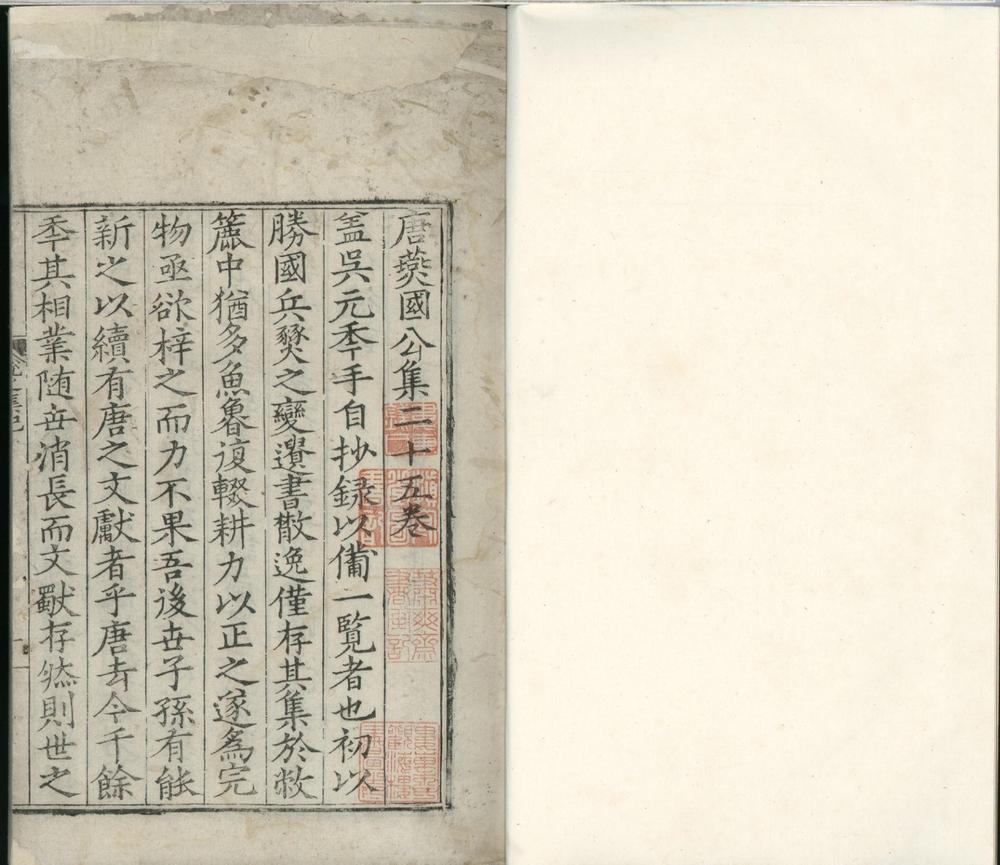 唐燕國公集二十五卷
盖吳元秊手自抄録以俻一覧者也初以
勝國兵燹之變遺書散逸僅存其集於敝
簏中猶多魚魯复輟耕力以正之遂為完
物亟欲梓之而力不果吾後世子孫有能
新之以續有唐之文獻者乎唐去今千餘
秊其相業随世消長而文獻存然則世之